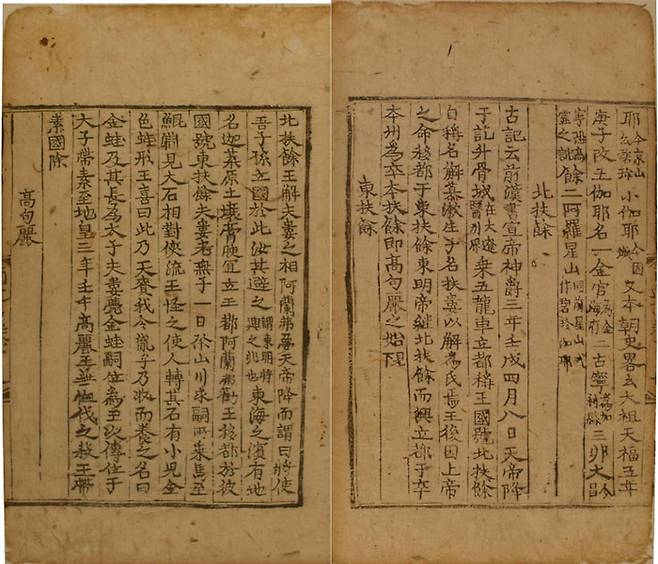 耶今京山云碧珍小伽耶今固城又本朝史畧云太祖天福五年
庚子改五伽耶名一金官為金海府二古寧為加利縣三非火今昌
寧恐高靈之訛餘二阿羅星山同前星山或作碧珍伽耶
北扶餘
古記云前漢書宣帝神爵三年壬戌四月八日天帝降
于訖升骨城在大遼醫州界乗五龍車立都稱王國號北扶餘
自稱名解慕漱生子名扶婁以解為氏焉王後因上帝
之命移都于東扶餘東明帝継北扶餘而興立都于卒
本州為卒本扶餘即高句麗之始祖
東扶餘
北扶餘王解夫婁之相阿蘭弗夢天帝降而謂曰將使
吾子孫立國於此汝其避之謂東明將興之兆也東海之濱有地
名迦葉原土壤膏腴宜立王都阿蘭弗勸王移都於彼
國號東扶餘夫婁老無子一日祭山川求嗣所乘馬至
鯤淵見大石相對俠流王怪之使人轉其石有小兒金
色蛙形王喜曰此乃天賚我令胤乎乃收而養之名曰
金蛙及其長為太子夫婁薨金蛙嗣位為王次傳位于
太子帶素至地皇三年壬午高麗王無恤伐之殺王帶
素國除
高句麗